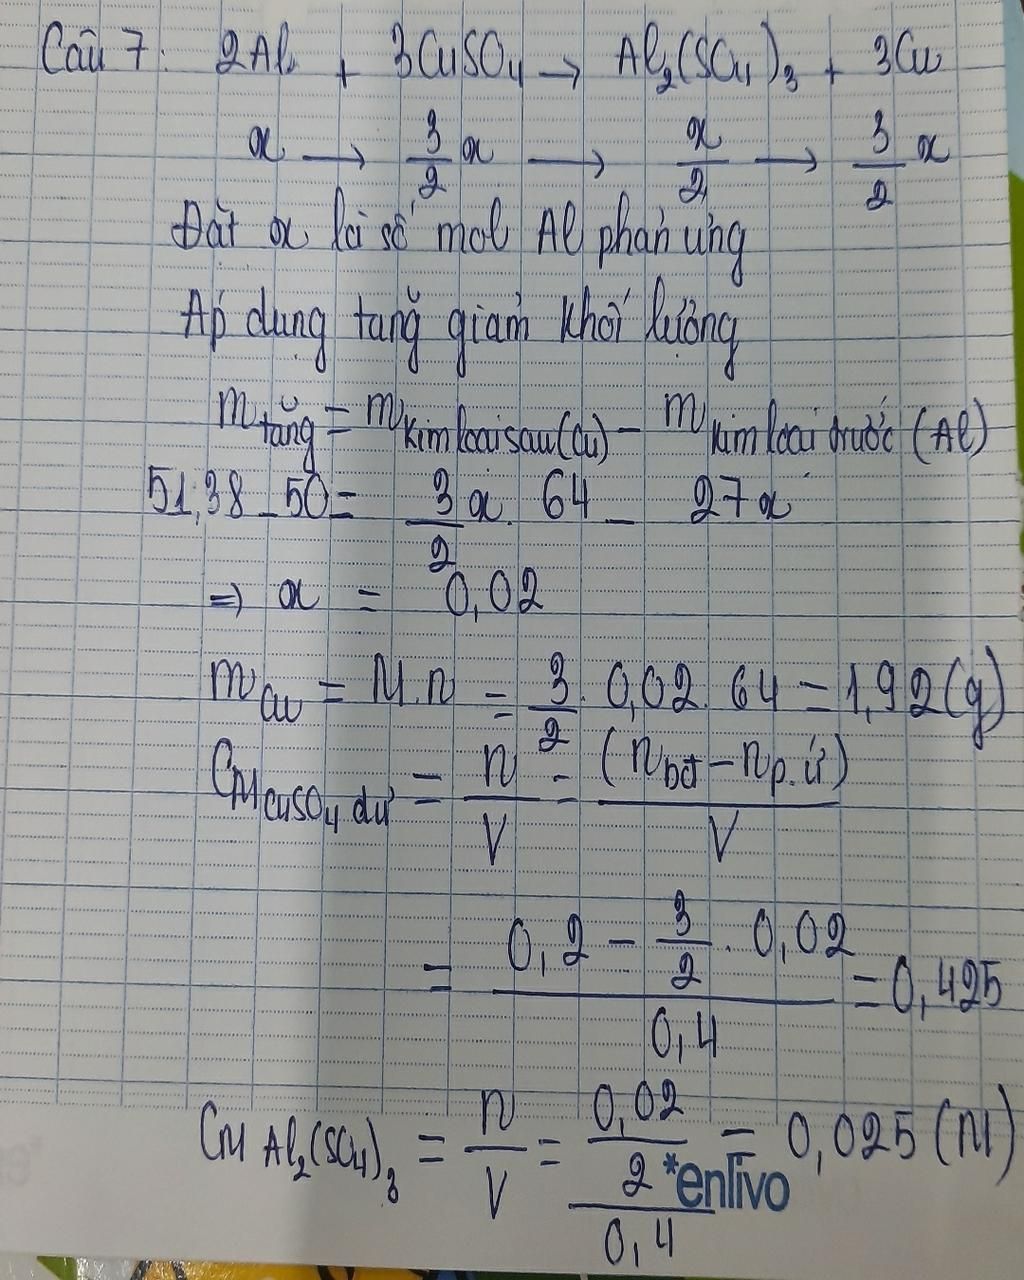 Câu 7: 2Al + 3CuSO4 → Al2(SO4)3 + 3Cu
x → 3/2 x → x/2 → 3/2 x
Đặt x là số mol Al phản ứng
Áp dụng tăng giảm khối lượng
m tăng = m kim loại sau (Cu) - m kim loại trước (Al)
51,38 - 50 = 3/2 x . 64 - 27x
=> x = 0,02
m Cu = M.n = 3/2 . 0,02 . 64 = 1,92 (g)
CM CuSO4 dư = n/V = (n bđ - n p.ứ)/V
= (0,2 - 3/2 . 0,02)/0,4 = 0,425
CM Al2(SO4)3 = n/V = (0,02/2)/0,4 = 0,025 (M)
*enlivo